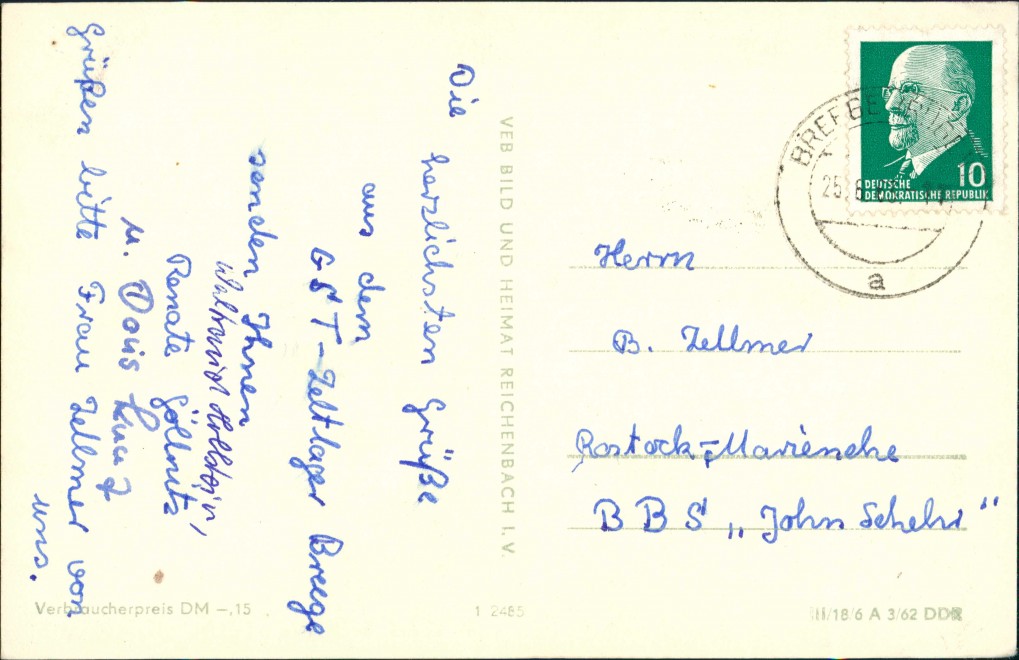 Die
herzlichsten Grüße
aus dem
GST-Zeltlager Breege
senden Ihnen
Waltraud Hollstein,
Renate Göllnitz
u. Doris
Grüßen bitte Frau Zellmer von
uns.
VEB BILD UND HEIMAT REICHENBACH I. V.
Verbraucherpreis DM –,15
1 2485
III/18/6 A 3/62 DDR
10
DEUTSCHE
DEMOKRATISCHE REPUBLIK
BREEGE
25.
a
Herrn
B. Zellmer
Rostock-Marienehe
BBS „John Schehr“